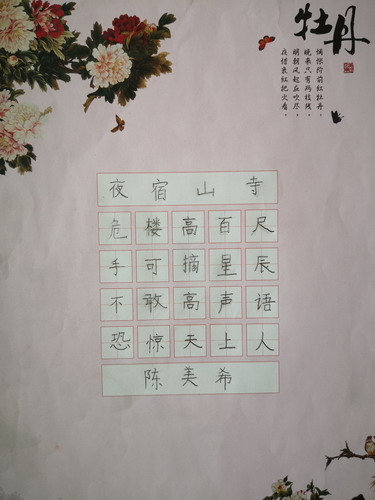 牡丹
惆怅阶前红牡丹，
晚来只有两枝残。
明朝风起应吹尽，
夜惜衰红把火看。
夜宿山寺
危楼高百尺
手可摘星辰
不敢高声语
恐惊天上人
陈美希